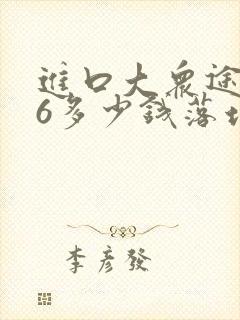 進口大眾途
6多少錢落地
李彥發